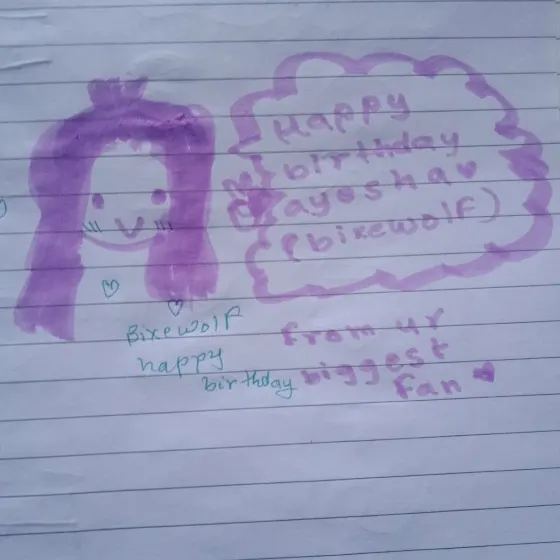 Happy
birthday
ayesha♥
(bixewolf)
Bixewolf
happy
birthday
from ur
biggest
fan ♥